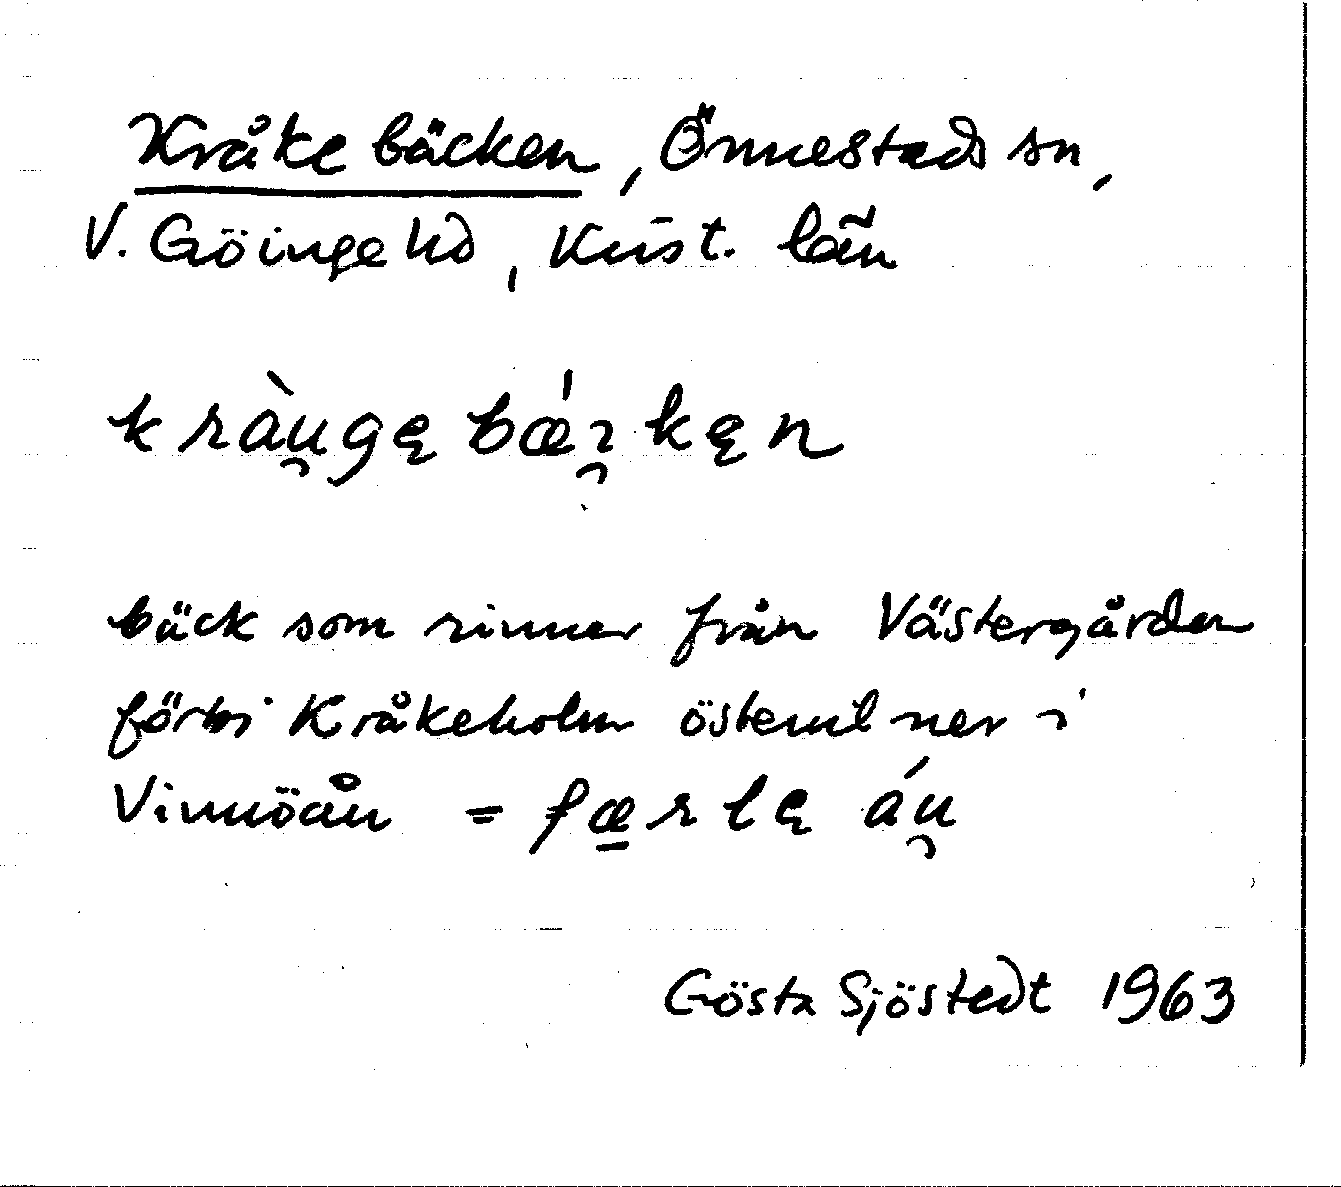 Kråkebäcken, Önnestads sn,
V. Göinge hd, Krist. län
kràu̯gę bǽi̯kęn
bäck som rinner från Västergården
förbi Kråkeholm österut ner i
Vinnöån = fæ̠rlę áu̯
Gösta Sjöstedt 1963